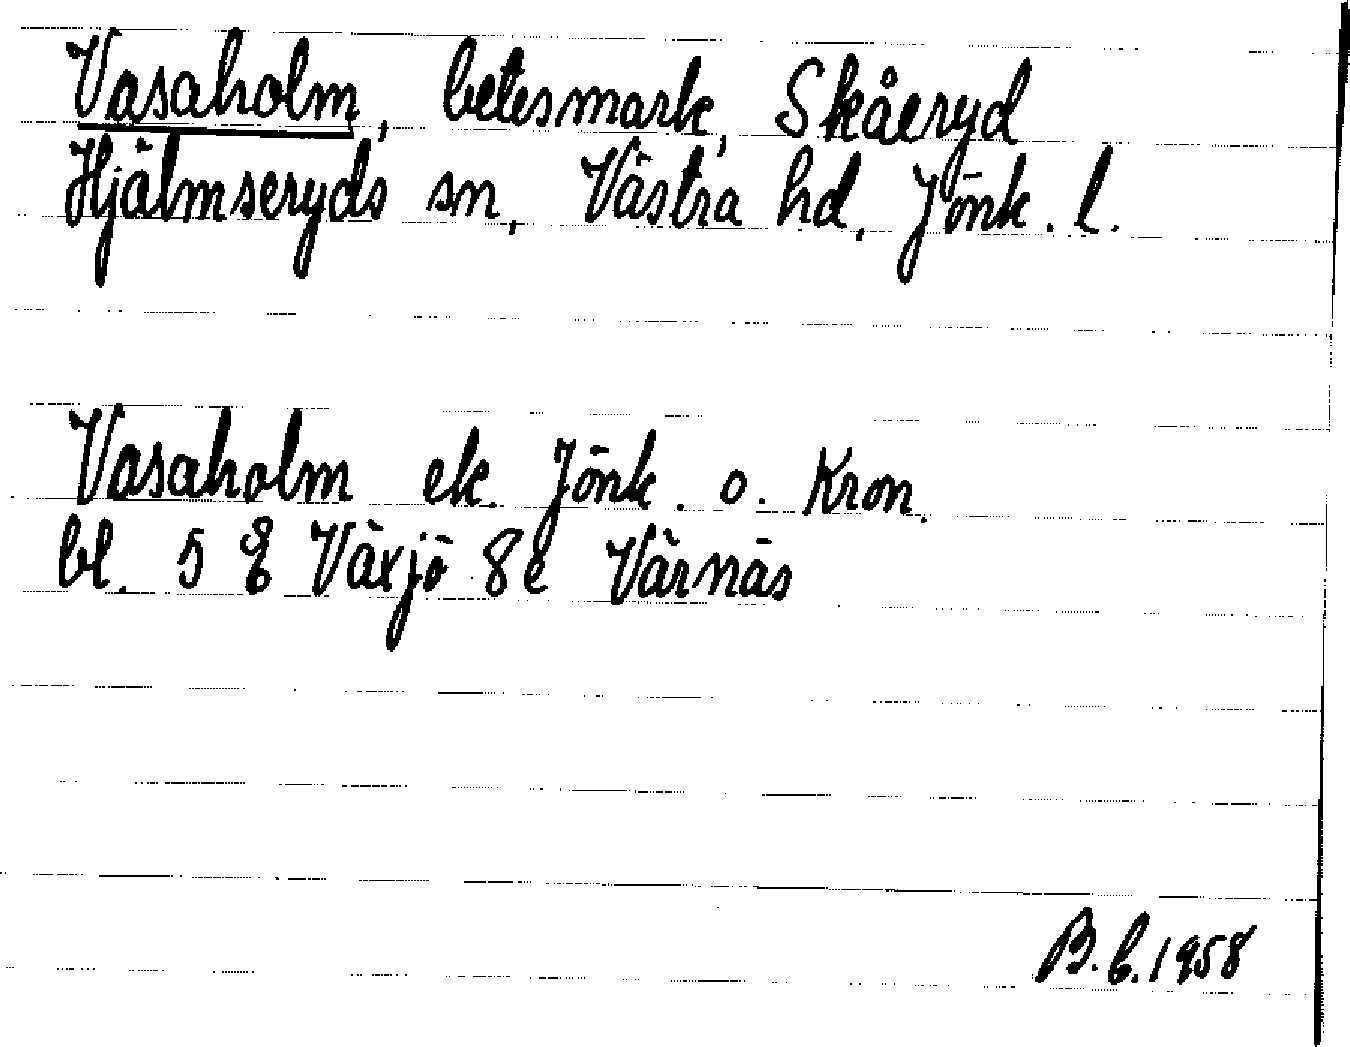 Vasaholm, betesmark, Skåeryd
Hjälmseryds sn, Västra hd, Jönk. l.
Vasaholm ek. Jönk. o. Kron.
bl. 5 E Växjö 8e Värnäs
B.L. 1958